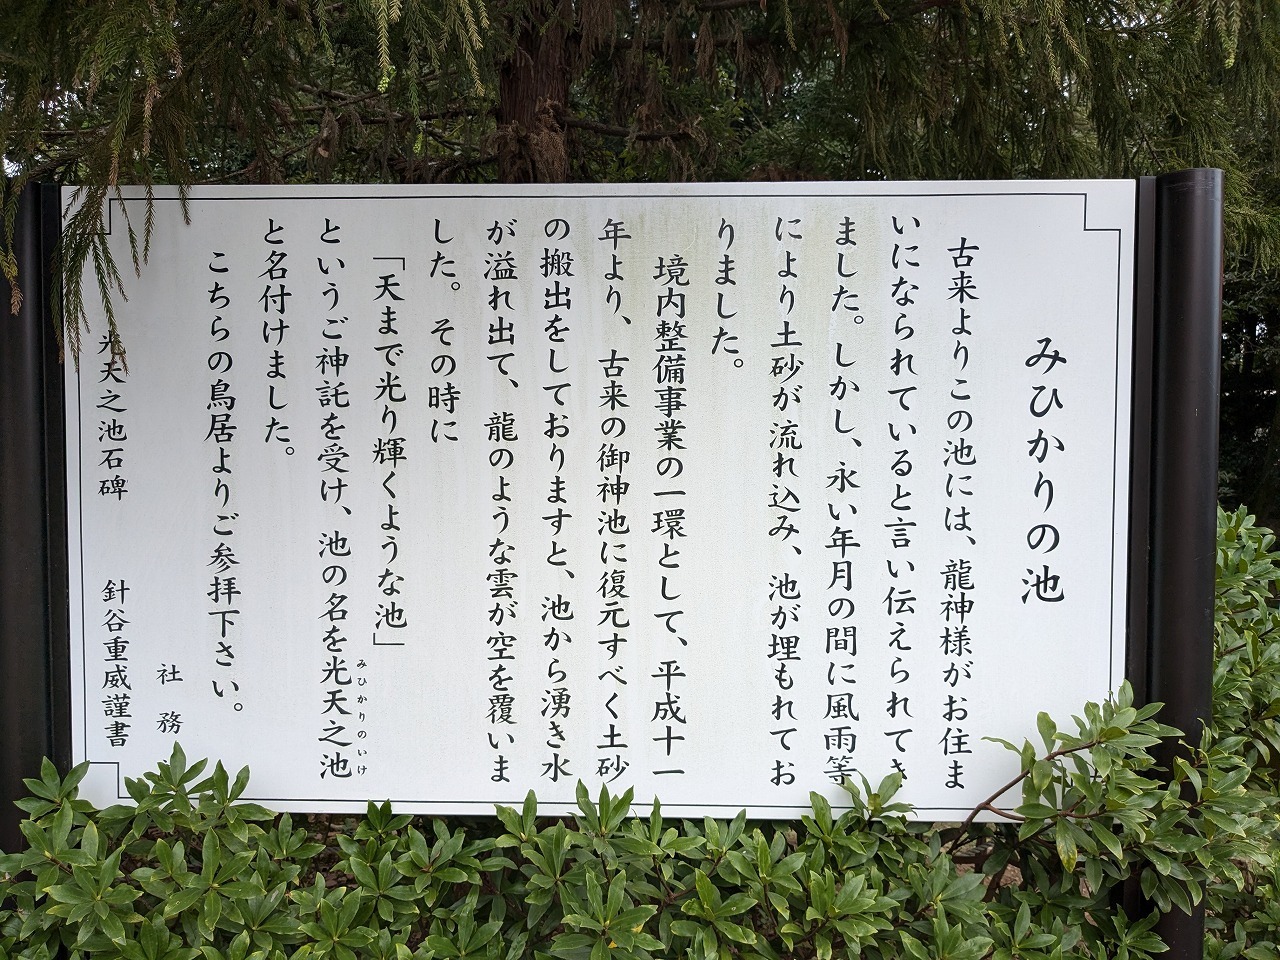 みひかりの池
古来よりこの池には、龍神様がお住ま
いになられていると言い伝えられてき
ました。しかし、永い年月の間に風雨等
により土砂が流れ込み、池が埋もれてお
りました。
境内整備事業の一環として、平成十一
年より、古来の御神池に復元すべく土砂
の搬出をしておりますと、池から湧き水
が溢れ出て、龍のような雲が空を覆いま
した。その時に
「天まで光り輝くような池」
というご神託を受け、池の名を光天之池
みひかりのいけ
と名付けました。
こちらの鳥居よりご参拝下さい。
社務
光天之池石碑 針谷重威謹書